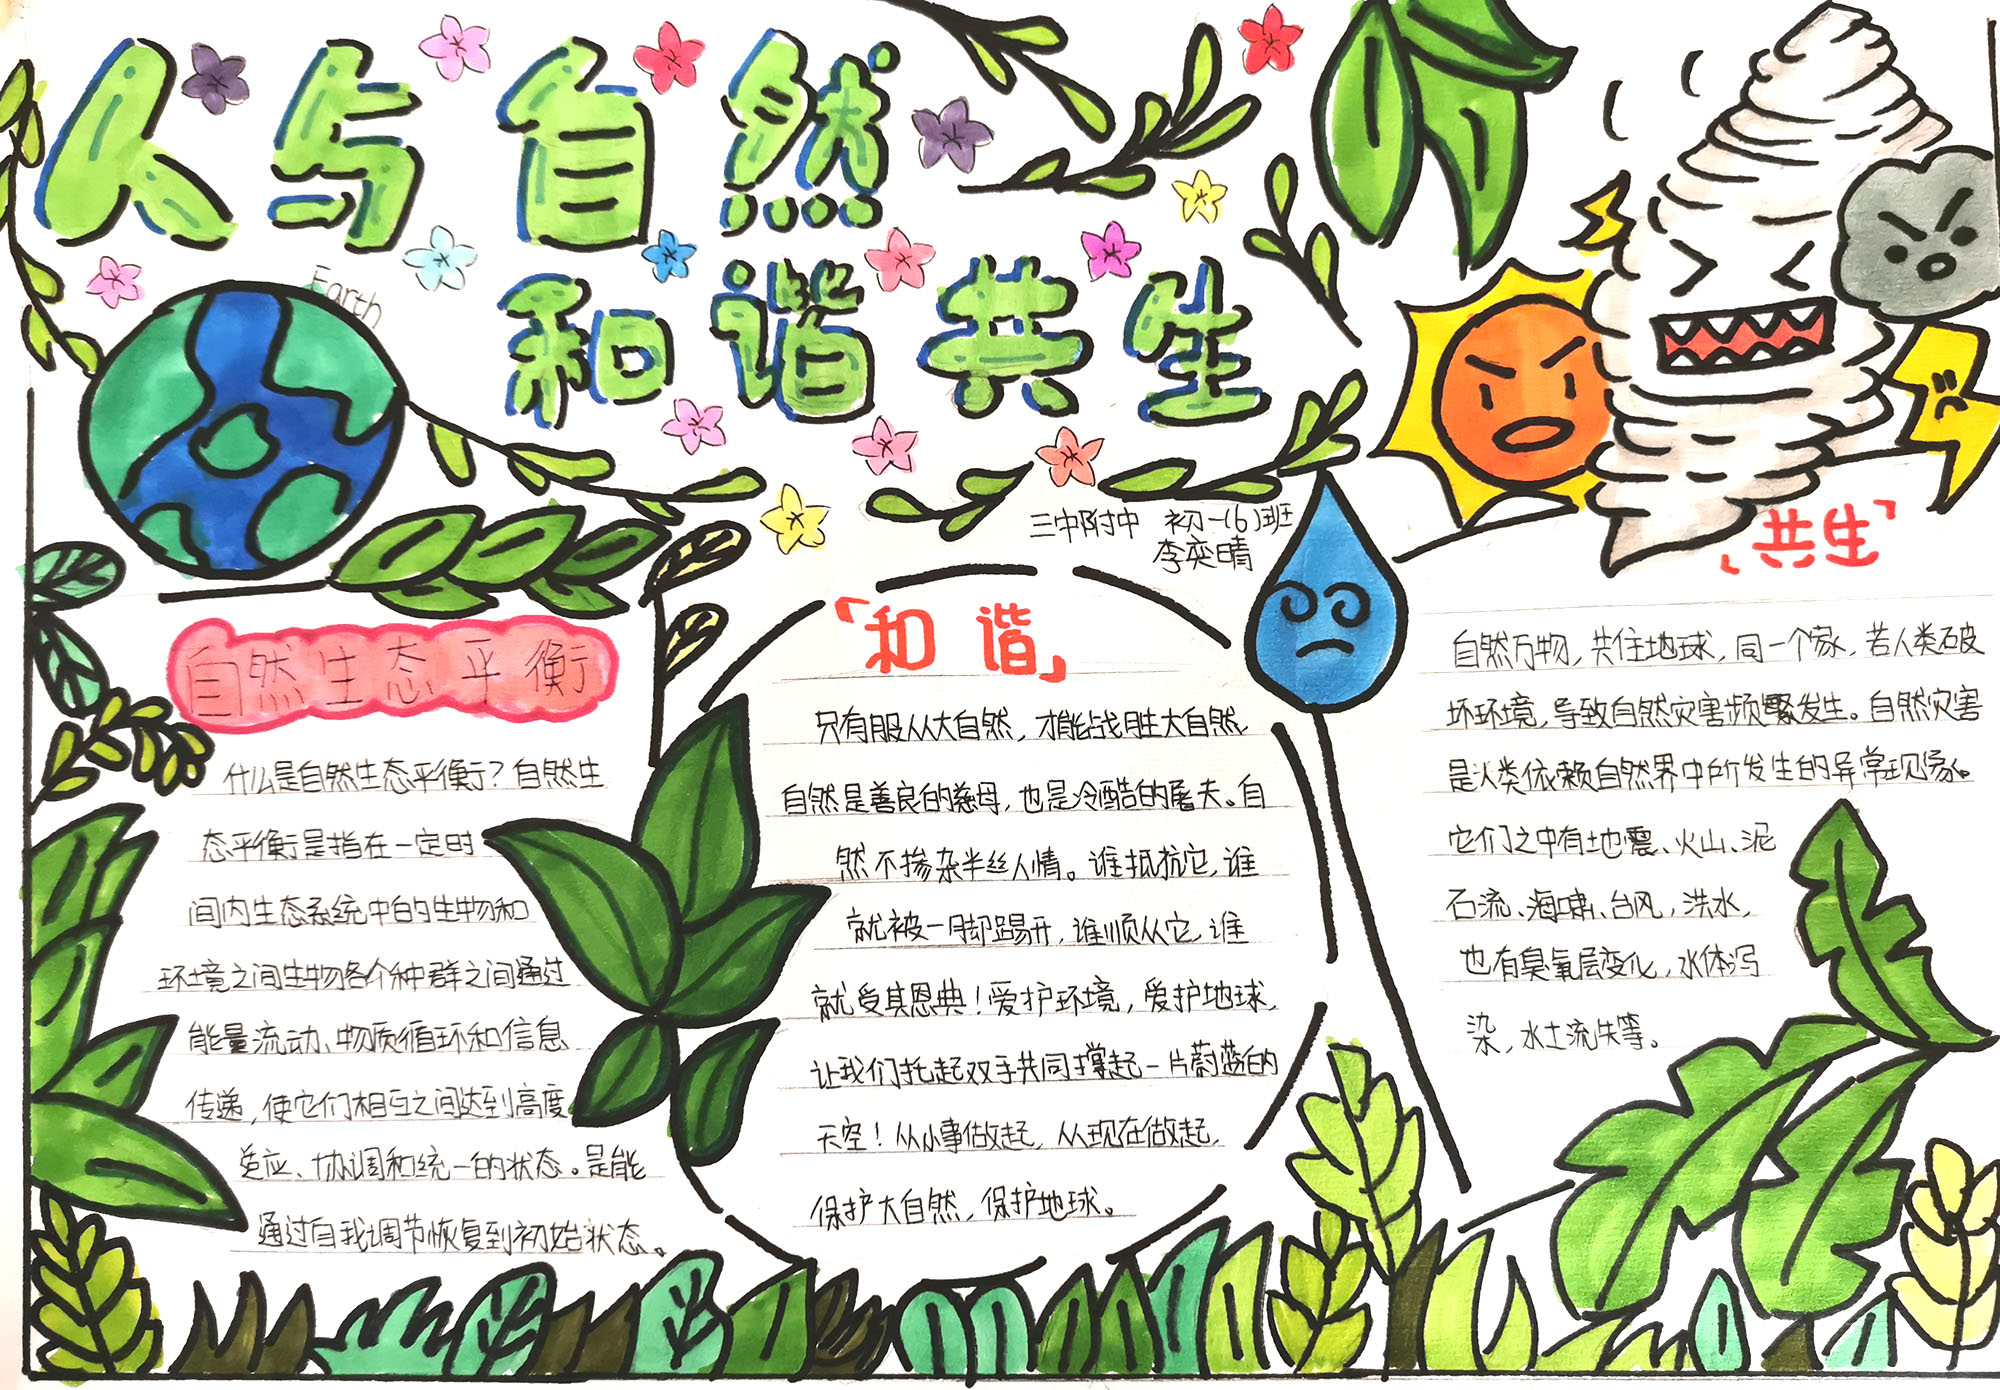 人与自然
和谐共生
Earth
三中附中 初一(6)班
李奕晴
自然生态平衡
什么是自然生态平衡？自然生
态平衡是指在一定时
间内生态系统中的生物和
环境之间生物各个种群之间通过
能量流动、物质循环和信息
传递，使它们相互之间达到高度
适应、协调和统一的状态。是能
通过自我调节恢复到初始状态。
「和谐」
只有服从大自然，才能战胜大自然
自然是善良的慈母，也是冷酷的屠夫。自
然不掺杂半丝人情。谁抵抗它，谁
就被一脚踢开，谁顺从它，谁
就受其恩典！爱护环境，爱护地球，
让我们托起双手共同撑起一片蔚蓝的
天空！从小事做起，从现在做起，
保护大自然，保护地球。
「共生」
自然万物，共住地球，同一个家，若人类破
坏环境，导致自然灾害频繁发生。自然灾害
是人类依赖自然界中所发生的异常现象。
它们之中有地震、火山、泥
石流、海啸、台风，洪水，
也有臭氧层变化，水体污
染，水土流失等。